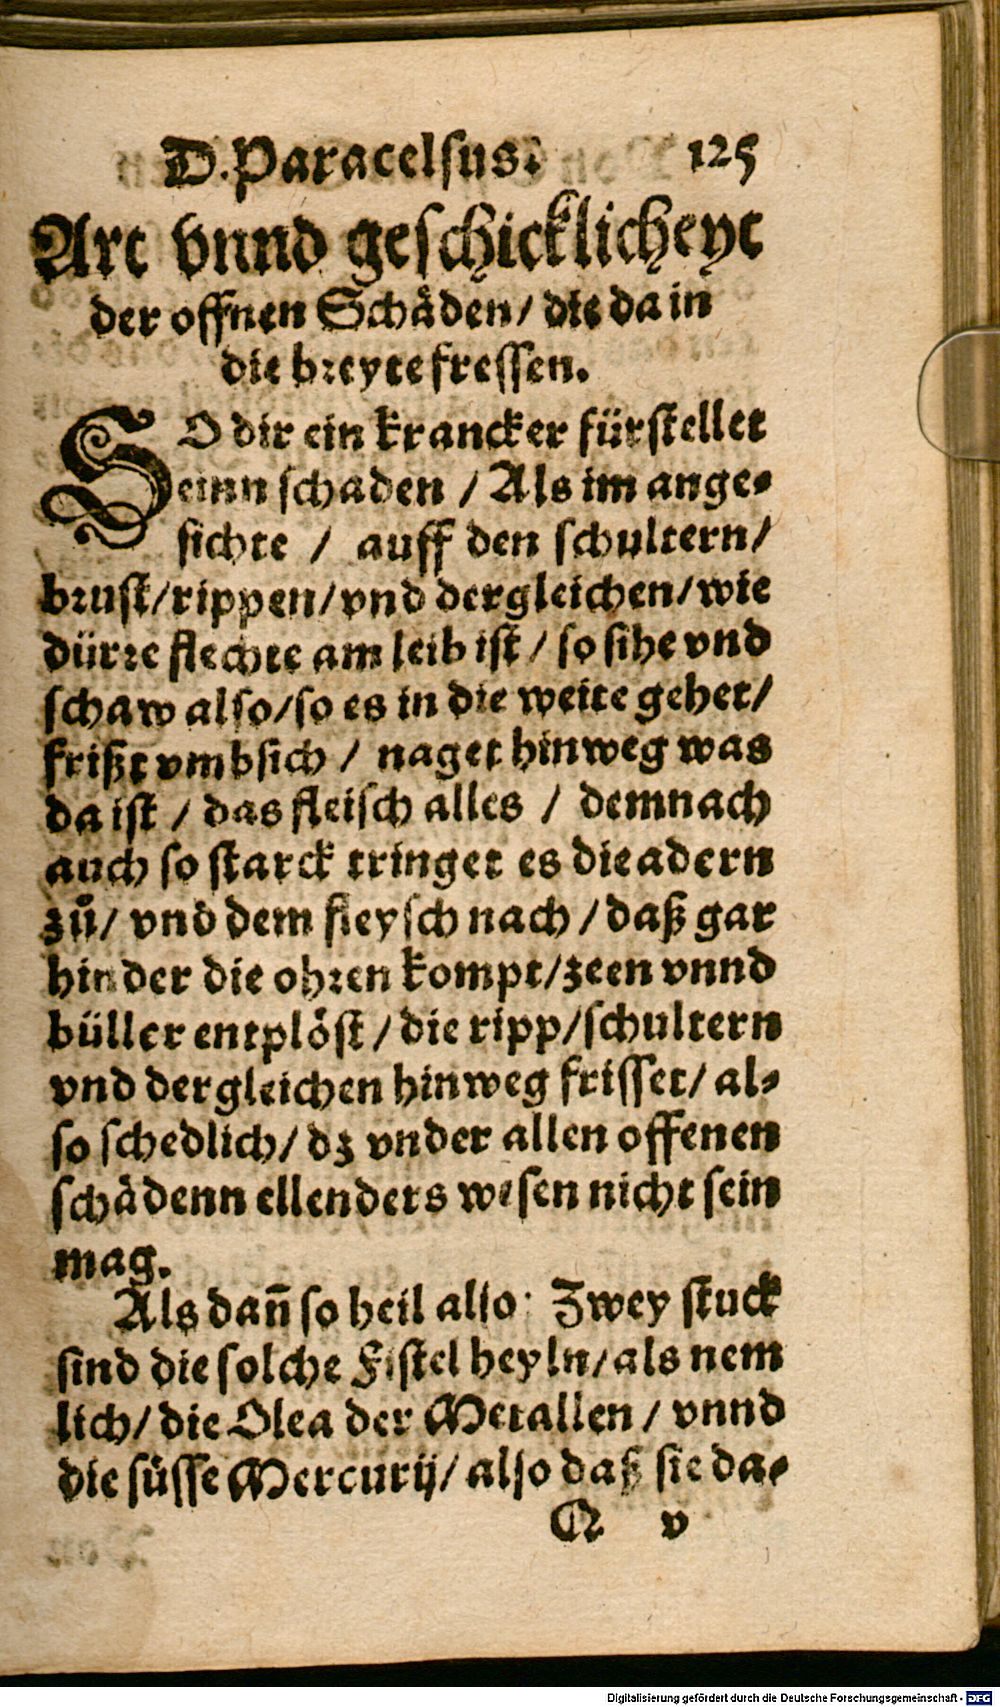 D. Paracelsus. 125
Art vnnd geschicklicheyt
der offnen Schåden/ die da in
die breyte fressen.
SO dir ein krancker fürstellet
seinn schaden / Als im ange-
sichte / auff den schultern/
brust/rippen/vnd dergleichen/wie
dürre flechte am leib ist / so sihe vnd
schaw also/so es in die weite gehet/
frißt vmbsich / naget hinweg was
da ist / das fleisch alles / demnach
auch so starck tringet es die adern
zů/ vnd dem fleysch nach / daß gar
hinder die ohren kompt/zeen vnnd
büller entplöst / die ripp/schultern
vnd dergleichen hinweg frisset/ al-
so schedlich/ dz vnder allen offenen
schådenn ellenders wesen nicht sein
mag.
Als dañ so heil also: Zwey stuck
sind die solche Fistel heyln/als nem
lich/ die Olea der Metallen / vnnd
die süsse Mercurij/ also daß sie da-
Q v
Digitalisierung gefördert durch die Deutsche Forschungsgemeinschaft - DFG